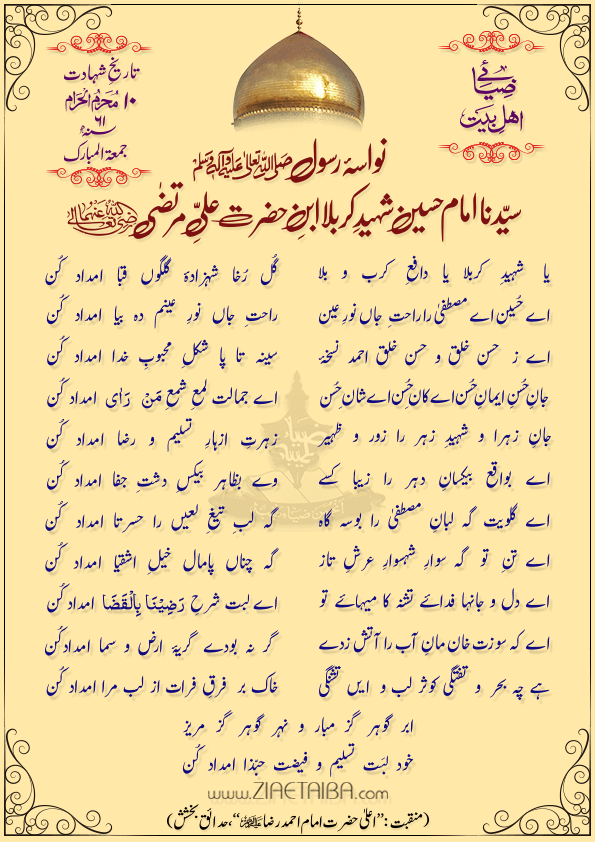 ضیائے
اہلِ بیت
تاریخِ شہادت
۱۰ مُحرّمُ الْحَرَام
۶۱
سنہ
جمعۃ المبارک
نواسۂ رسول صلی اللہ تعالیٰ علیہ وآلہ وسلم
سیّدنا امام حسین شہیدِ کربلا ابنِ حضرت علیِّ مرتضٰی رضی اللہ تعالیٰ عنہما
یا شہیدِ کربلا یا دافعِ کرب و بلا گُل رُخا شہزادۂ گلگوں قبا امداد کُن
اے حُسین اے مصطفیٰ را راحتِ جاں نورِ عین راحتِ جاں نورِ عینم دہ بیا امداد کُن
اے ز حسن خلق و حسن خلق احمد نسخۂ سینہ تا پا شکلِ محبوبِ خدا امداد کُن
جانِ حُسنِ ایمانِ حُسن اے کانِ حُسن اے شانِ حُسن اے جمالت لمعِ شمعِ مَنْ رَاٰی امداد کُن
جانِ زہرا و شہیدِ زہر را زور و ظہیر زہرتِ ازہارِ تسلیم و رضا امداد کُن
اے بواقع بیکسانِ دہر را زیبا کسے وے بظاہر بیکسِ دشتِ جفا امداد کُن
اے گلویت گہ لبانِ مصطفیٰ را بوسہ گاہ گہ لبِ تیغِ لعیں را حسرتا امداد کُن
اے تنِ تو گہ سوارِ شہسوارِ عرشِ تاز گہ چناں پامالِ خیلِ اشقیا امداد کُن
اے دل و جانہا فدائے تشنہ کا میہائے تو اے لبت شرحِ رَضِیْنَا بِالْقَضَا امداد کُن
اے کہ سوزت خان مانِ آب را آتش زدے گر نہ بودے گریۂ ارض و سما امداد کُن
ہے چہ بحر و تفتگی کوثر لب و ایں تشنگی خاک بر فرقِ فرات از لب مرا امداد کُن
ابر گوہر گز مبار و نہر گوہر گز مریز
خود لبَت تسلیم و فیضت حبّذا امداد کُن
www.ZIAETAIBA.com
(منقبت: "اعلیٰ حضرت امام احمد رضا"، حدائقِ بخشش)